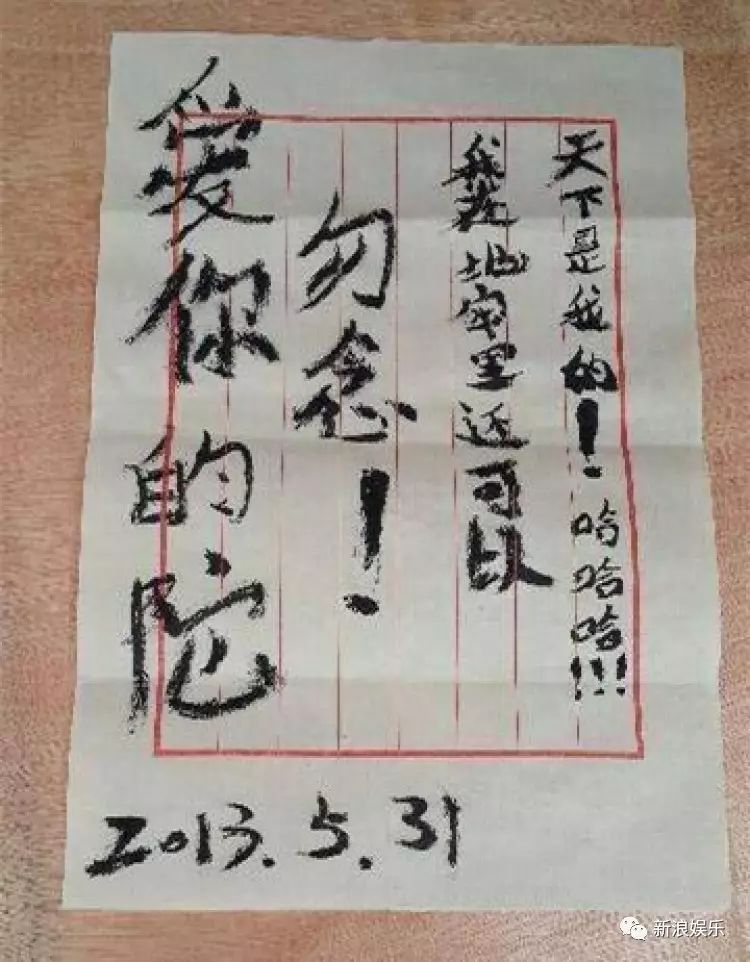 天下是我的！哈哈哈!!!
我在地窖里还可以
勿念！
爱你的陀
2013.5.31
新浪娱乐